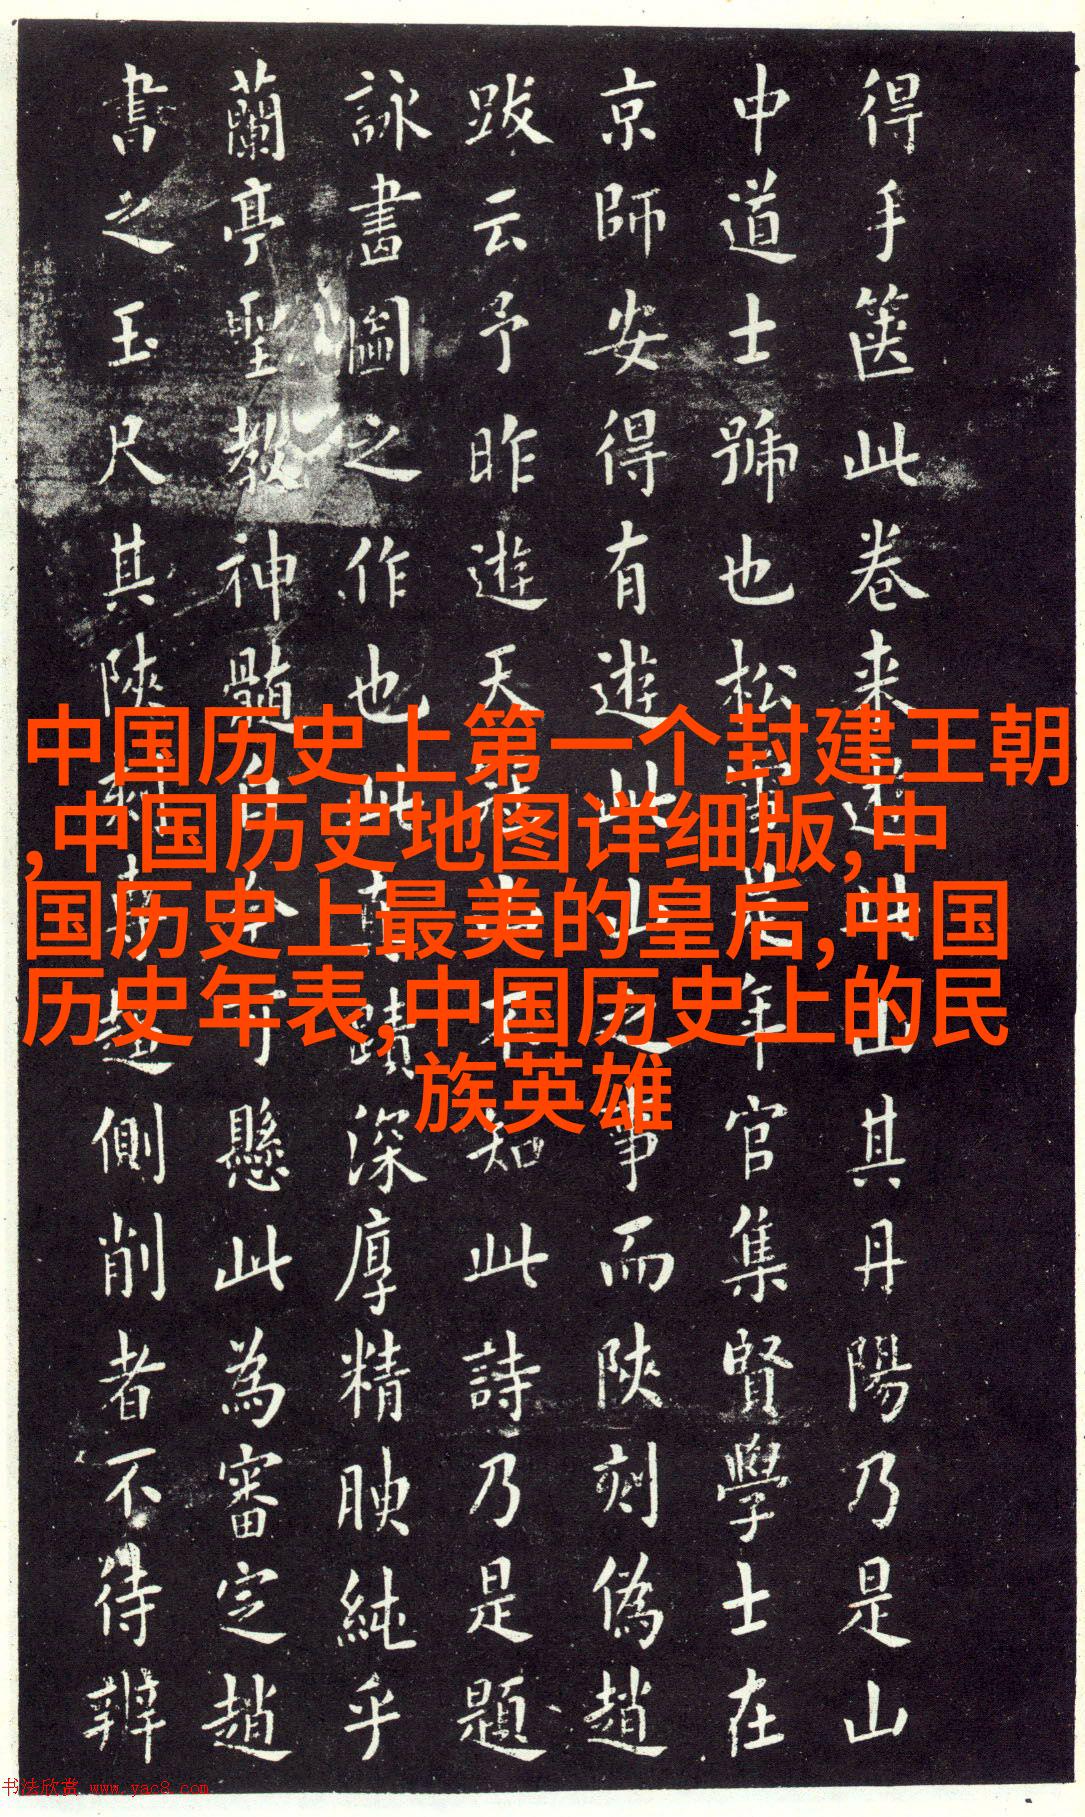 得手篋此卷来此山其丹陽乃是山
中道士號也松年官集賢學士在
京師安得有遊此山之事而陝刻偽趙
跋云予昨遊天不知此詩乃是題
詠畫圖之作也此蹟深厚精腴純乎
蘭亭聖教神髓自今可懸此為審定趙
書之玉尺其陝刻側削者不待辨
中国历史上第一个封建王朝
,中国历史地图详细版,中
国历史上最美的皇后,中国
历史年表,中国历史上的民
族英雄
书法欣赏 www.yac8.com